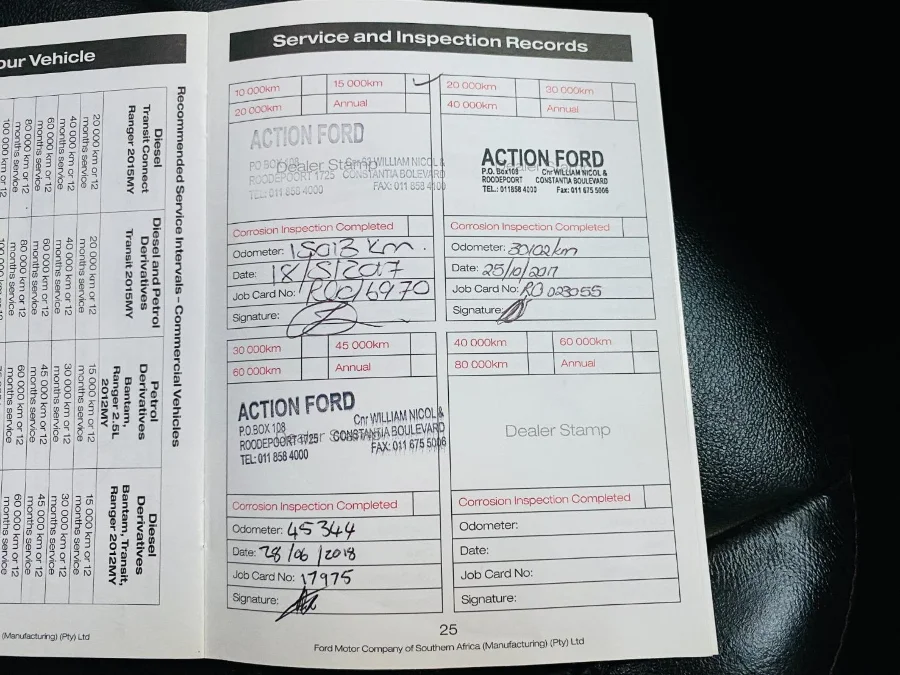 our Vehicle
Recommended Service Intervals – Commercial Vehicles
Diesel
Transit Connect
Ranger 2015MY
20 000km or 12
months service
40 000 km or 12
months service
60 000 km or 12
months service
80 000 km or 12
months service
100 000 km or 12
Diesel and Petrol
Derivatives
Transit 2015MY
20 000 km or 12
months service
40 000 km or 12
months service
60 000 km or 12
months service
80 000 km or 12
months service
100 000 km or 12
Petrol
Derivatives
Bantam,
Ranger 2.5L
2012MY
15 000 km or 12
months service
30 000 km or 12
months service
45 000 km or 12
months service
60 000 km or 12
months service
Diesel
Derivatives
Bantam, Transit,
Ranger 2012MY
15 000 km or 12
months service
30 000 km or 12
months service
45 000 km or 12
months service
60 000 km or 12
months service
(Manufacturing) (Pty) Ltd
Service and Inspection Records
10 000km 15 000km
20 000km Annual
ACTION FORD
Dealer Stamp
PO BOX 108 Cnr WILLIAM NICOL &
ROODEPOORT 1725 CONSTANTIA BOULEVARD
TEL: 011 858 4000 FAX: 011 858 4100
Corrosion Inspection Completed
Odometer: 15013 km.
Date: 18/5/2017
Job Card No:
Signature:
20 000km 30 000km
40 000km Annual
ACTION FORD
P.O. Box108 Cnr WILLIAM NICOL &
ROODEPOORT CONSTANTIA BOULEVARD
TEL.: 011858 4000 Fax: 011 675 5006
Corrosion Inspection Completed
Odometer: 30102km
Date: 25/10/2017
Job Card No: RO 023055
Signature:
30 000km 45 000km
60 000km Annual
ACTION FORD
P.O.BOX 108 Cnr WILLIAM NICOL &
ROODEPOORT 1725 CONSTANTIA BOULEVARD
Dealer Stamp
TEL: 011 858 4000 FAX: 011 675 5006
Corrosion Inspection Completed
Odometer: 45344
Date: 28/06/2018
Job Card No: 17975
Signature:
40 000km 60 000km
80 000km Annual
Dealer Stamp
Corrosion Inspection Completed
Odometer:
Date:
Job Card No:
Signature:
25
Ford Motor Company of Southern Africa (Manufacturing) (Pty) Ltd